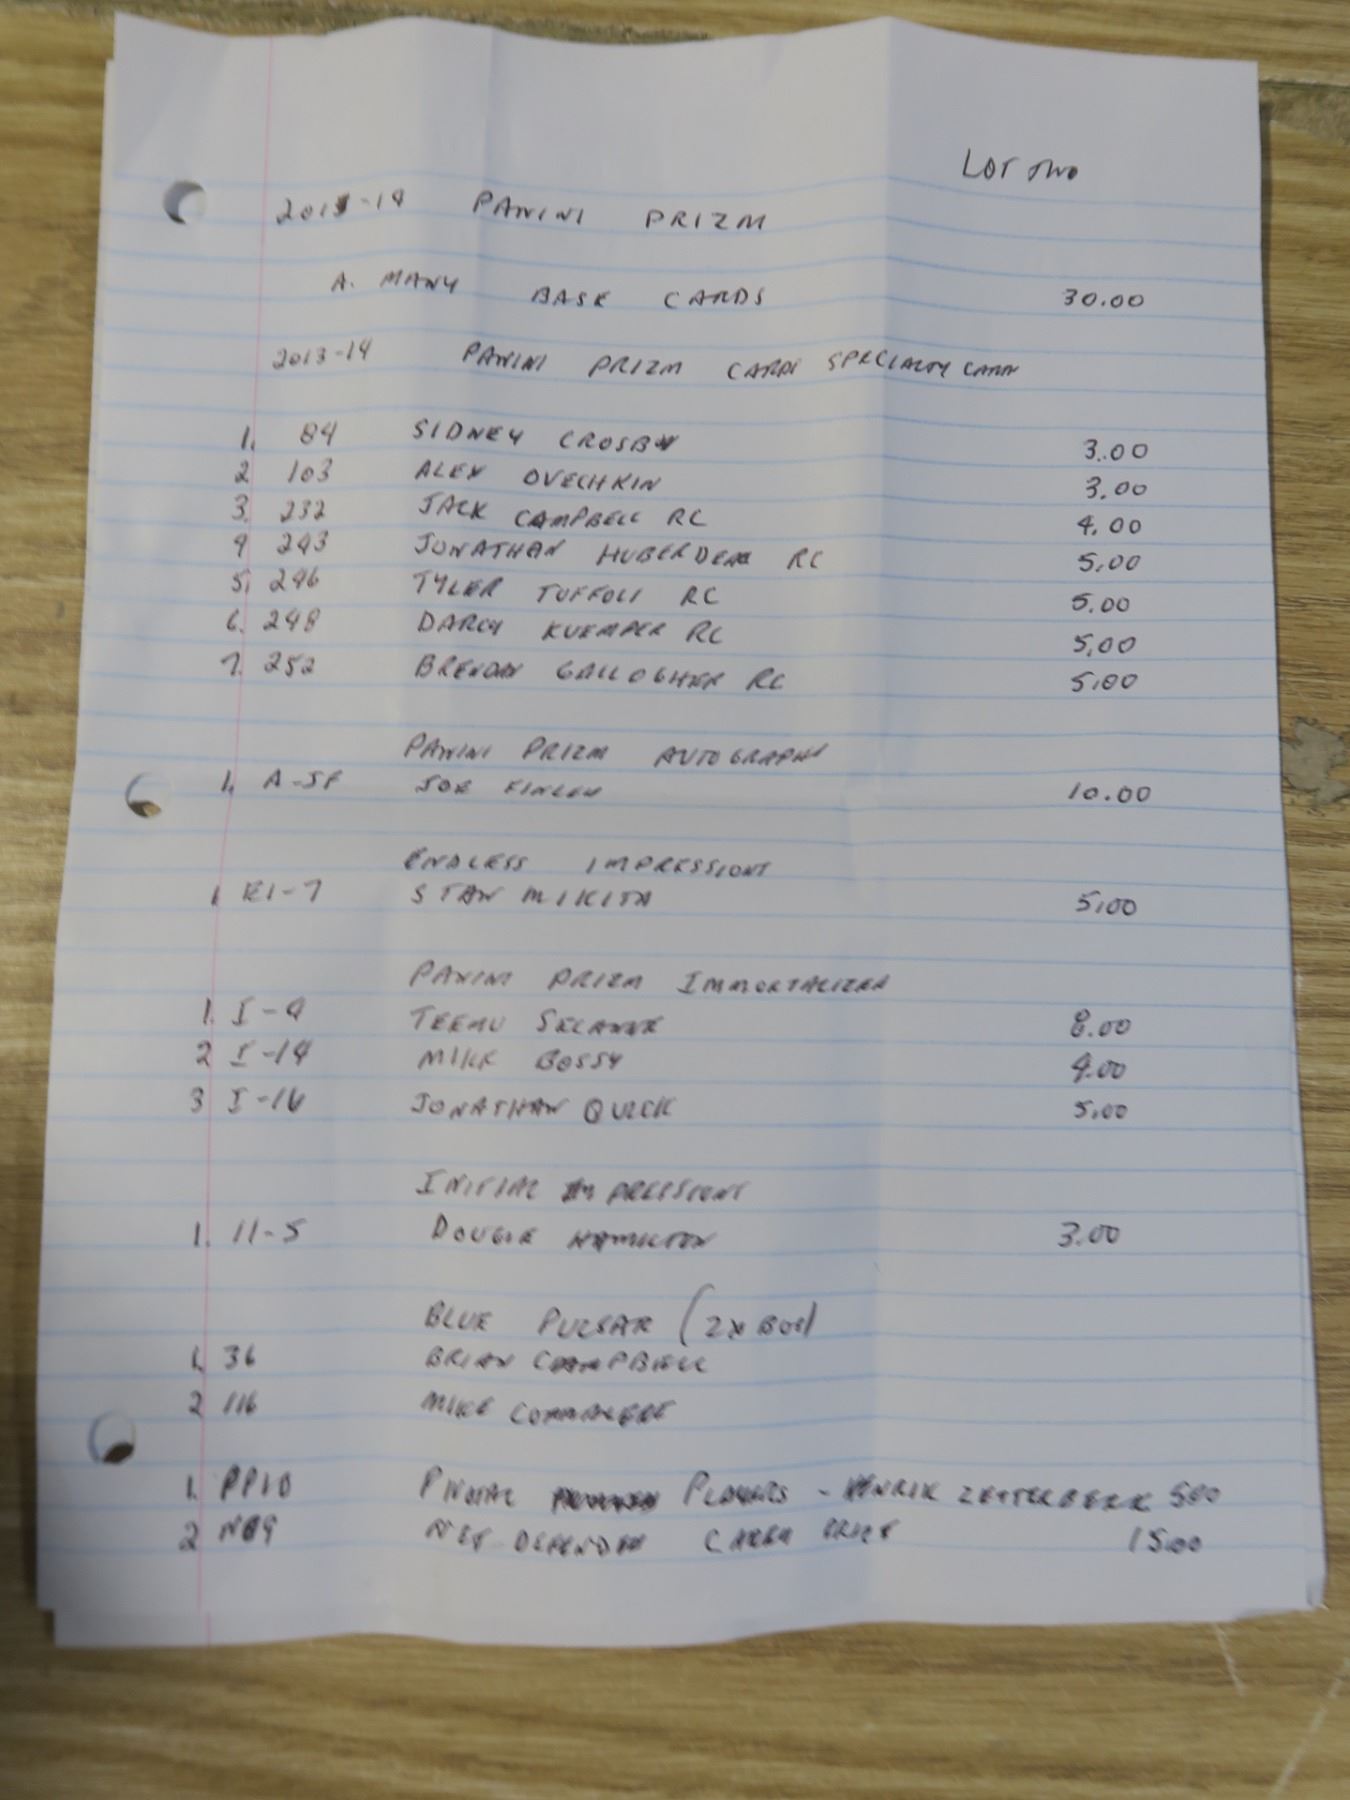 LOT TWO
2013-14 PANINI PRIZM
A. MANY BASE CARDS 30.00
2013-14 PANINI PRIZM CARDS SPECIALTY CARDS
1. 84 SIDNEY CROSBY 3.00
2 103 ALEX OVECHKIN 3.00
3. 232 JACK CAMPBELL RC 4.00
4 243 JONATHAN HUBERDEAU RC 5.00
5. 246 TYLER TOFFOLI RC 5.00
6. 248 DARCY KUEMPER RC 5.00
7. 252 BRENDAN GALLOGHER RC 5.00
PANINI PRIZM AUTOGRAPHS
1. A-JF JOE FINLEY 10.00
ENDLESS IMPRESSIONS
1 EI-7 STAN MIKITA 5.00
PANINI PRIZM IMMORTALIZED
1. I-9 TEEMU SELANNE 8.00
2 I-14 MIKE BOSSY 4.00
3 I-16 JONATHAN QUICK 5.00
INITIAL IMPRESSIONS
1. 11-5 DOUGIE HAMILTON 3.00
BLUE PULSAR (2X
1. 36 BRIAN CAMPBELL
2 116 MIKE COMMALERE
1. PP10 PIVOTAL PLAYERS - HENRIK ZETTERBERK 500
2 ND9 NET DEFENDER CAREY PRICE 15.00